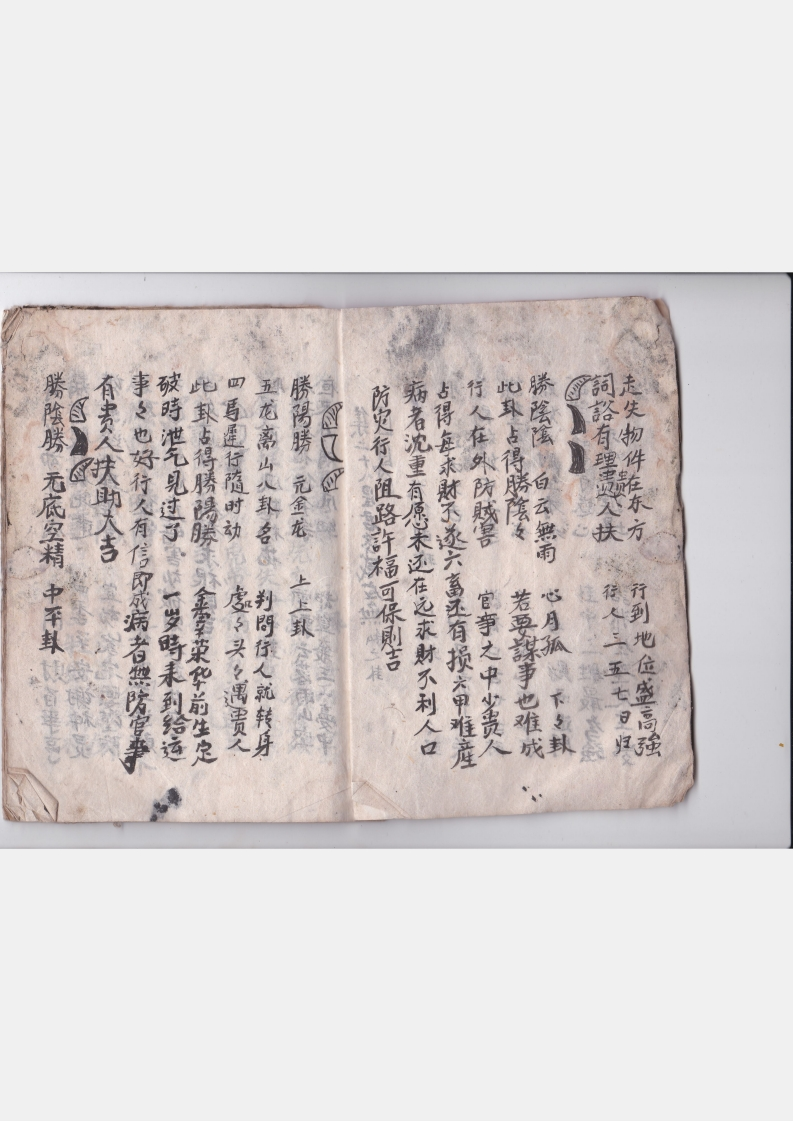 走失物件在东方　行到地位盛高強
詞訟有理貴人扶　行人三五七日归
勝陰陰　白云無雨　心月孤　下々卦
此卦占得勝陰々　若要謀事也难成
行人在外防賊害　官事之中少贵人
占得每求財不遂六畜还有损六甲难産
病者沈重有愿未还在远求財不利人口
防灾行人阻路許福可保則吉
勝陽勝　元金龙　上上卦
五龙离山八卦名　判問行人就转身
四馬遲行隨时动　處々头々遇贵人
此卦占得勝陽勝　金荣华前生定
破時泄气見过了　一岁時来到给运
事々也好行人有信即成病者無防官事
有貴人扶助大吉
勝陰勝　元底空精　中平卦